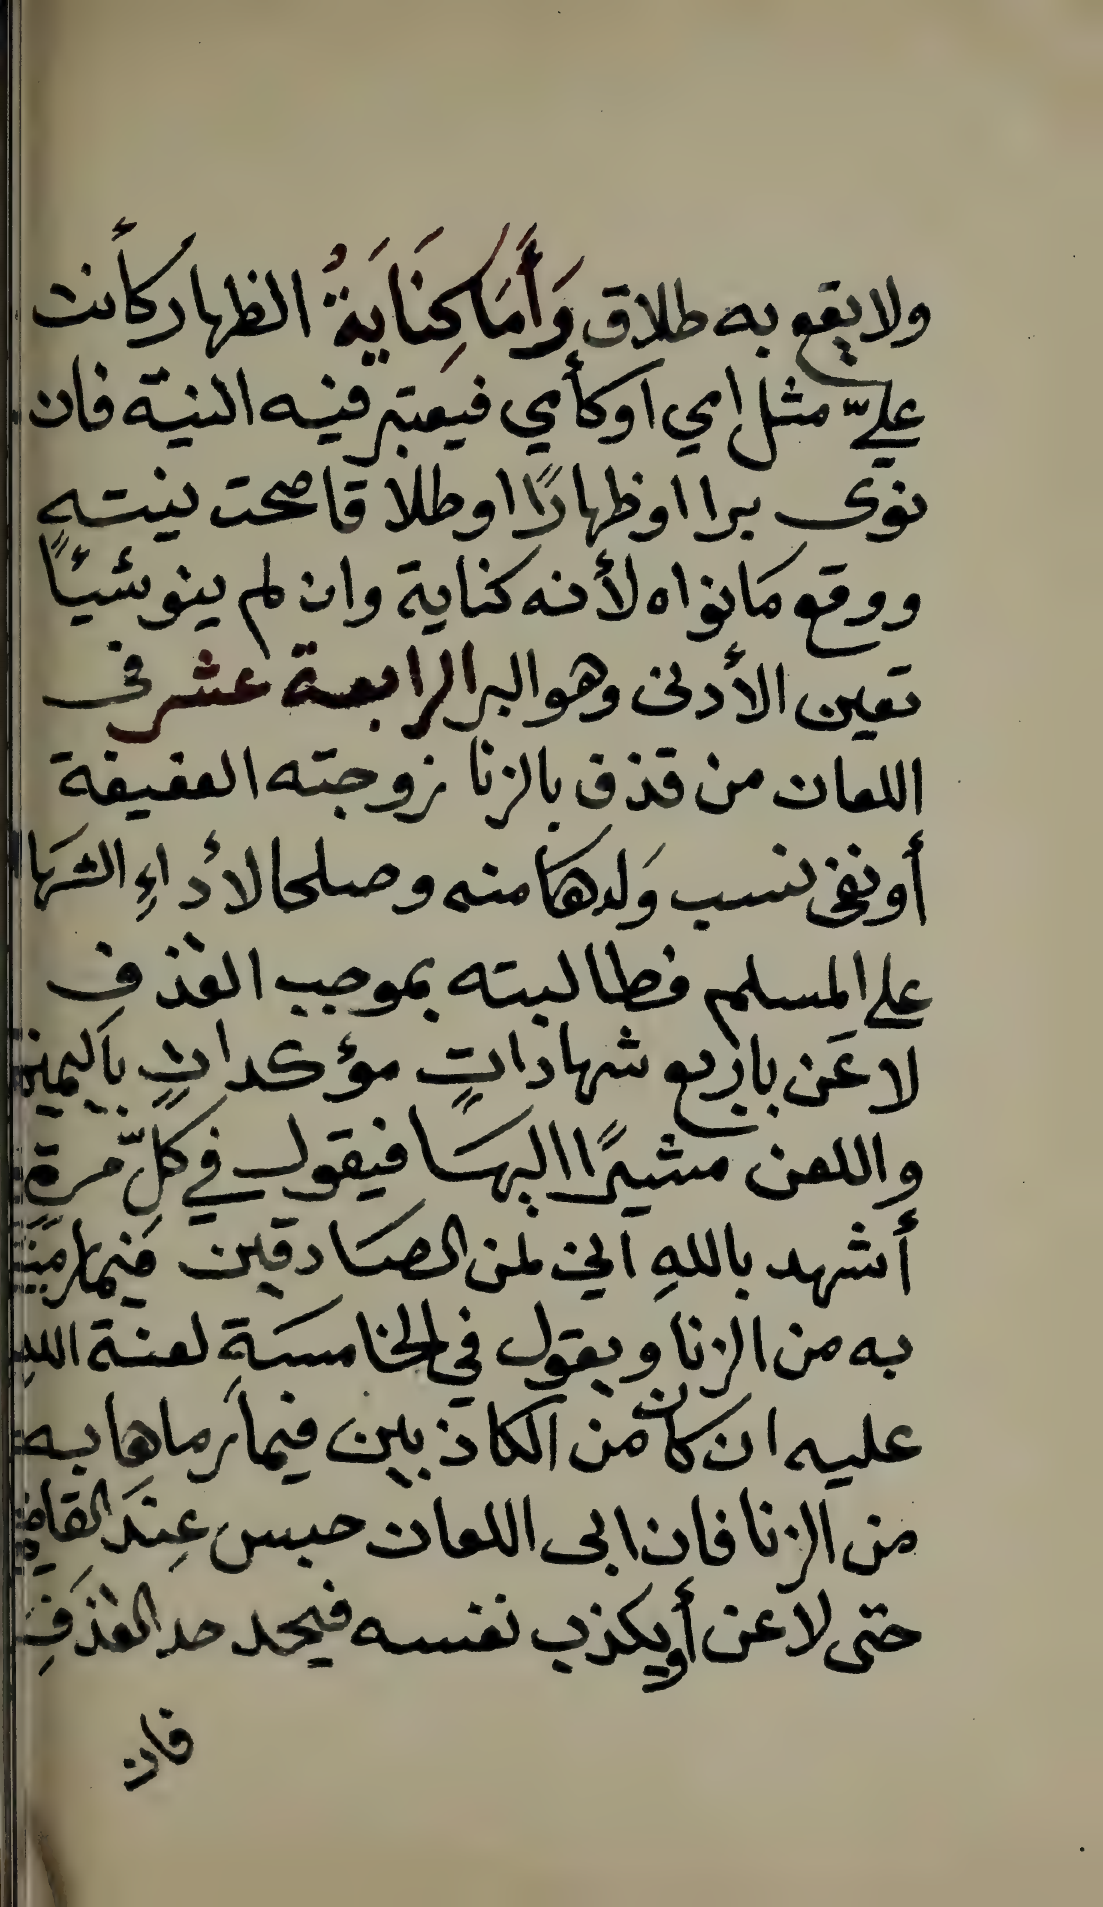 ولا يقع به طلاق وَأَمَا كِنَايَةُ الظهار كأنت
عليّ مثل امي او كأمي فيعتبر فيه النية فان
نوى برا او ظهارًا او طلاقا صحت نيته
ووقع مَا نواه لأنه كناية وان لم ينو شيئًا
تعين الأدنى وهو البر الرابعة عشر فى
اللعان من قذف بالزنا زوجته العفيفة
أو نفى نسب وَلدهَا منه وصلحا لأداءِ الشها
على المسلم فطالبته بموجب القذف
لاعَن باربع شهاداتٍ مؤكداتٍ باليمين
واللعن مشيرًا اليهَا فيقول في كلّ مرةٍ
أشهد باللهِ اني لمن الصَادقين فيما رميتها
به من الزنا ويقول في الخامسَةِ لعنة الله
عليه ان كان من الكاذبين فيما رماها به
من الزنا فان ابى اللعان حبس عِندَ القاضي
حتى لاعن أو يكذب نفسه فيحد حد القذفِ
فان